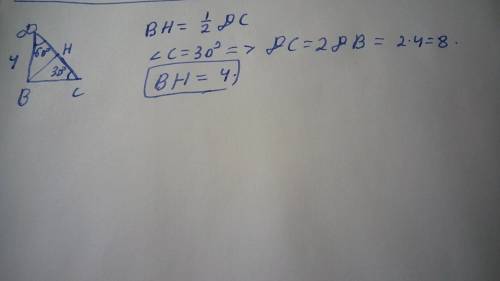 D
60°
H
4
30°
B
C
BH = 1/2 DC
∠C = 30° => DC = 2DB = 2·4 = 8.
BH = 4.